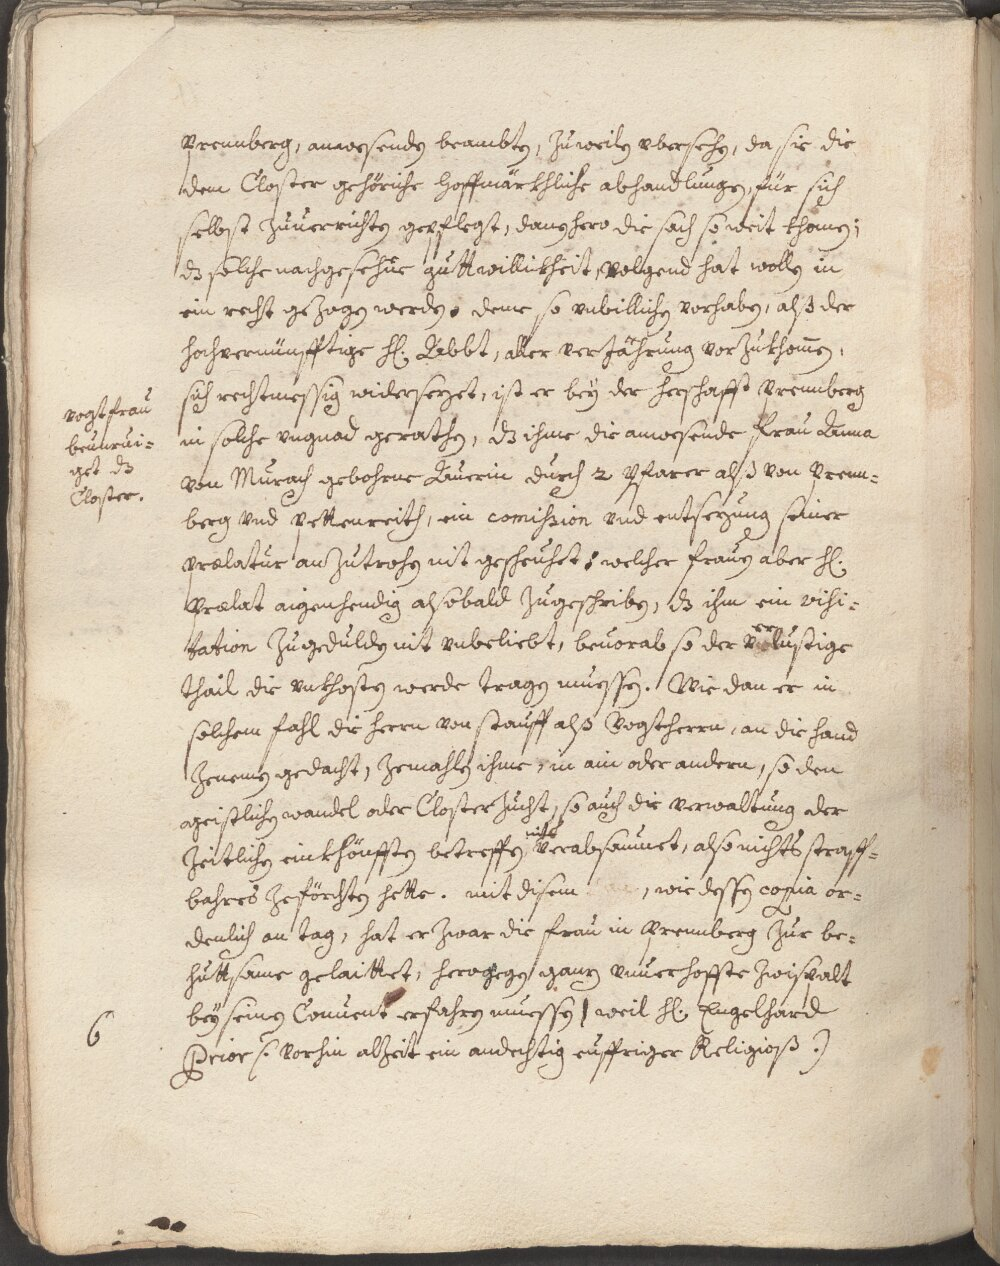 Prennberg, anwesenden beambten, zuweilen ybersehen, da sie die
dem Closter gehöriche hoffmärkhliche abhandlungen, für sich
selbst zuuerrichten gepflegt, danenhero die sach so weit khomen;
dz solche nachgesehne guttwillickheit, volgend hat wollen in
ein recht gezogen werden. deme so vnbillichen vorhaben, alß der
hochvernünfftige H. Abbt, aller verJährung vorzukhomen,
sich rechtmessig widersezet, ist er bey der herschafft Prennberg
in solche vngnad gerathen, dz ihme die anwesende Frau Anna
von Murach gebohrne Auerin durch 2 Pfarer alß von Prenn-
berg vnd Pettenreith, ein comission vnd entsezung seiner
prælatur an zutrohen nit gescheuhet; welcher frauen aber H.
Prælat aigenhendig alsobald zugeschriben, dz ihm ein visi-
tation zugedulden nit vnbeliebt, beuorab so der verlustige
thail die vnkhosten werde tragen muessen. Wie dan er in
solchem fahl die herrn von Stauff alß Vogtherrn, an die hand
zenemen gedacht, zemahlen ihme, in ain oder andern, so den
geistlichen wandel oder Closter zucht, so auch die verwaltung der
zeitlichen einkhönfften betreffen, nichts verabsaumet, also nichts straff-
bahres zeförchten hette. mit disem , wie dessen copia or-
denlich an tag, hat er zwar die frau in Prennberg zur be-
huttsame gelaittet, herogegen ganz vnuerhoffte zwispalt
bey seinem Conuent erfahren muessen, weil H. Engelhard
Prior (: vorhin alzeit ein andechtig euffriger Religioß :)
vogtfrau
beunrui-
get dz
Closter.
6